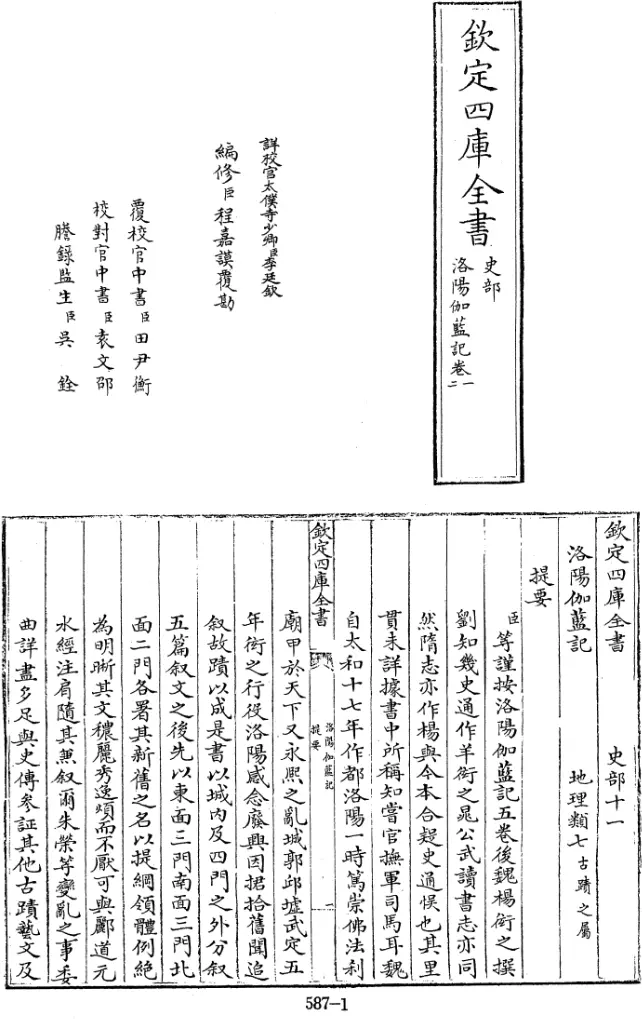 欽定四庫全書
史部
洛陽伽藍記卷一
二
詳校官太僕寺少卿臣李廷欽
編修臣程嘉謨覆勘
覆校官中書臣田尹衡
校對官中書臣袁文邵
謄錄監生臣吳銓
欽定四庫全書
史部十一
洛陽伽藍記
地理類七古蹟之屬
提要
臣等謹按洛陽伽藍記五卷後魏楊衒之撰
劉知幾史通作羊衒之晁公武讀書志亦同
然隋志亦作楊與今本合疑史通悞也其里
貫未詳據書中所稱知嘗官撫軍司馬耳魏
自太和十七年作都洛陽一時篤崇佛法刹
欽定四庫全書
洛陽伽藍記
提要
一
廟甲於天下又永熙之亂城郭邱墟武定五
年衒之行役洛陽感念廢興因捃拾舊聞追
叙故蹟以成是書以城内及四門之外分叙
五篇叙文之後先以東面三門南面三門北
面二門各署其新舊之名以提綱領體例絶
為明晰其文穠麗秀逸煩而不厭可與酈道元
水經注肩隨其兼叙爾朱榮等變亂之事委
曲詳盡多足與史傳參証其他古蹟藝文及
587-1